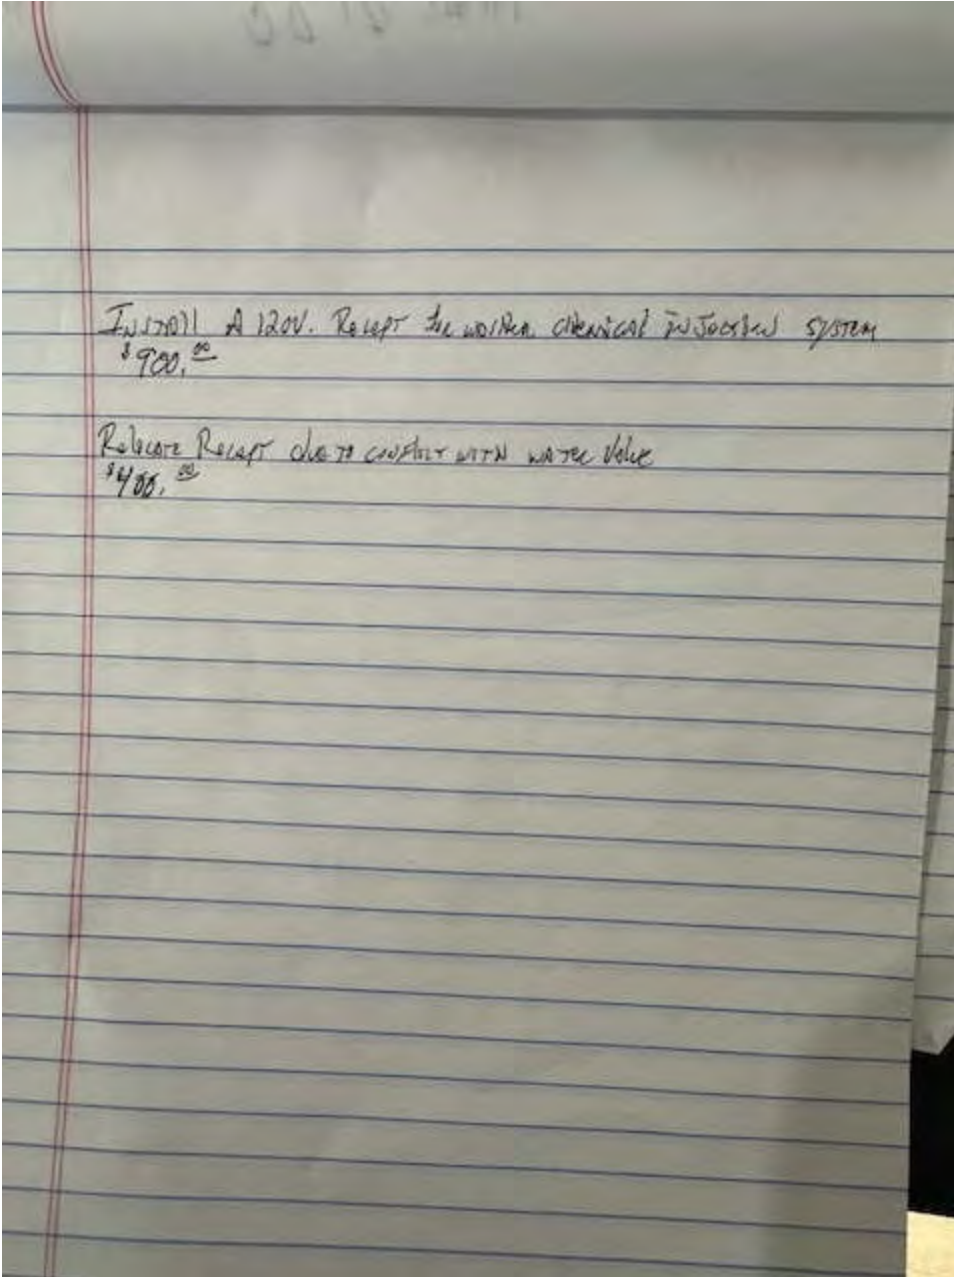 INSTAll A 120V. Recept for washer chemical injection system
$900.00
Relocate Recept due to conflict with water Valve
$400.00